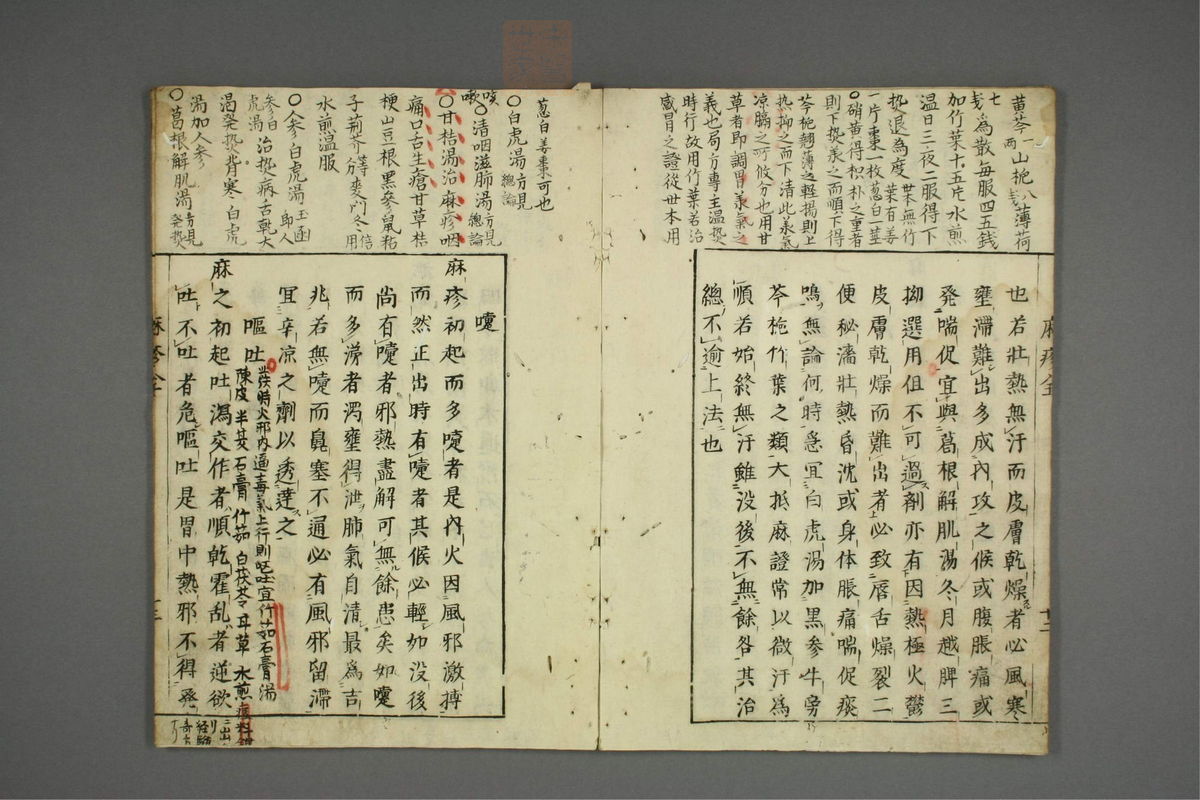 黄芩一両山梔八戔薄荷
七戔為散每服四五錢
加竹葉十五片水煎
温日三夜二服得一下
熱退為度
一片棗一枚葱白一莖
○硝黄得枳朴之重者
則下熱之而順下得
芩梔翹薄之輕揚則上
熱抑之而下清此
凉膈之所攸分也用甘
草者即調胃氣之
義也局方專主温熱
時行故用竹葉若治
感冒之證從世本用
葱白姜棗可也
也若壯熱無汗而皮膚乾燥者必風寒
壅滯難出多成內攻之候或腹脹痛或
発喘促宜與葛根解肌湯冬月越脾三
拗選用但不可過劑亦有因熱極火鬱
皮膚乾燥而難出者必致唇舌燥裂二
便秘濇壯熱昏沈或身体脹痛喘促痰
鳴無論何時急宜白虎湯加黒参牛旁
芩梔竹葉之類大抵麻證常以微汗為
順若始終無汗雖没後不無餘咎其治
總不逾上法也
麻疹全
○白虎湯方見總論
咳嗽○清咽滋肺湯方見總論
○甘桔湯治麻疹咽
痛口舌生瘡甘草桔
梗山豆根黒參鼠粘
子荊芥等分麥門冬倍用
水煎温服
○人參白虎湯玉函
即人參白虎湯治熱病舌乾大
渴発熱背寒白虎
湯加人参
○葛根解肌湯方見発熱
嚏
麻疹初起而多嚏者是內火因風邪激搏
而然正出時有嚏者其候必輕如没後
尚有嚏者邪熱盡解可無餘患矣如嚏
而多涕者濁壅得泄肺氣自清最為吉
兆若無嚏而鼻塞不通必有風邪留滯
宜辛凉之劑以透達之
嘔吐
此疾時火邪內逼毒氣上行則嘔吐宜竹茹石膏湯
陳皮 半夏 石膏 竹茹 白茯苓 甘草 水煎
麻之初起吐瀉交作者順乾霍乱者逆欲
吐不吐者危嘔吐是胃中熱邪不得発